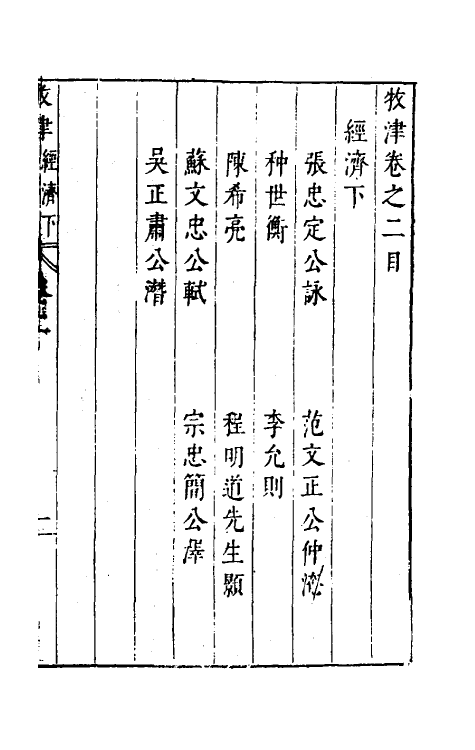 牧津卷之二目
經濟下
張忠定公詠　范文正公仲淹
种世衡　李允則
陳希亮　程明道先生顥
蘇文忠公軾　宗忠簡公澤
吳正肅公潛
牧津經濟下
二